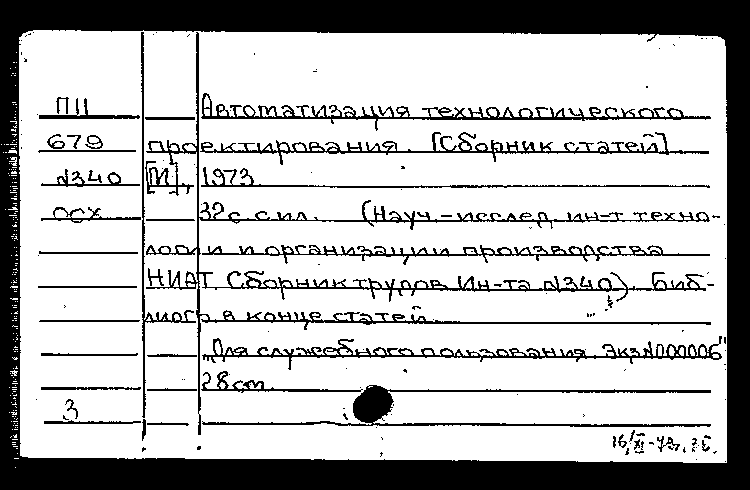 П11 Автоматизация технологического
679 проектирования. [Сборник статей]
N340 [М], 1973
ОСХ 32 с. с ил. (Науч.-исслед. ин-т техно-
логии и организации производства
НИАТ. Сборник трудов Ин-та N340). Биб-
лиогр. в конце статей
"Для служебного пользования. Экз N000006"
28 cm.
3
16/XI-73г.